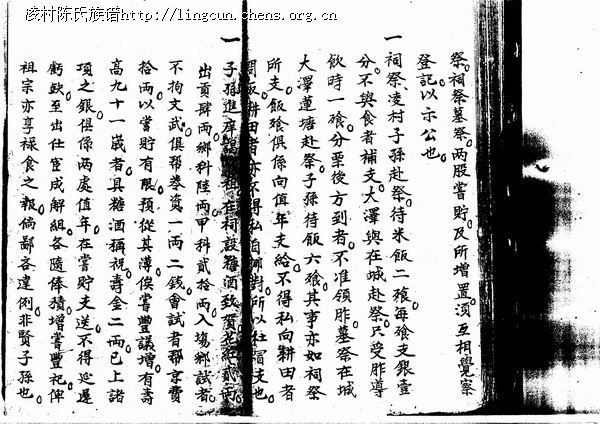 凌村陈氏族谱http://lingcun.chens.org.cn
祭祠祭墓祭兩股嘗貯及所增置須互相覺察
登記以示公也
一祠祭凌村子孫赴祭待米飯二飱每飱支銀壹
分不與食者補支大澤與在城赴祭只受胙導
飲時一飱分票後方到者不准領胙墓祭在城
大澤蓮塘赴祭子孫待飯六飱其事亦如祠祭
所支飯飱俱係向值年支給不得私向耕田者
耕田者亦不得私自 對所以杜冒支也
一子孫進庠 祖在祠設 酒致賀花紅貳兩
出貢肆兩鄉科陸兩甲科貳拾兩入場鄉試者
不拘文武俱幫卷資一兩二錢會試者幫京費
拾兩以嘗貯有限預從其薄俟嘗豐議增有壽
高九十一歲者具糖酒稱祝壽金二兩已上諸
項之銀俱係兩處值年在嘗貯支送不得延遲
虧欠至出仕宦成解組各隨俸積增嘗豐祀俾
祖宗亦享祿食之報倘鄙吝違例非賢子孫也